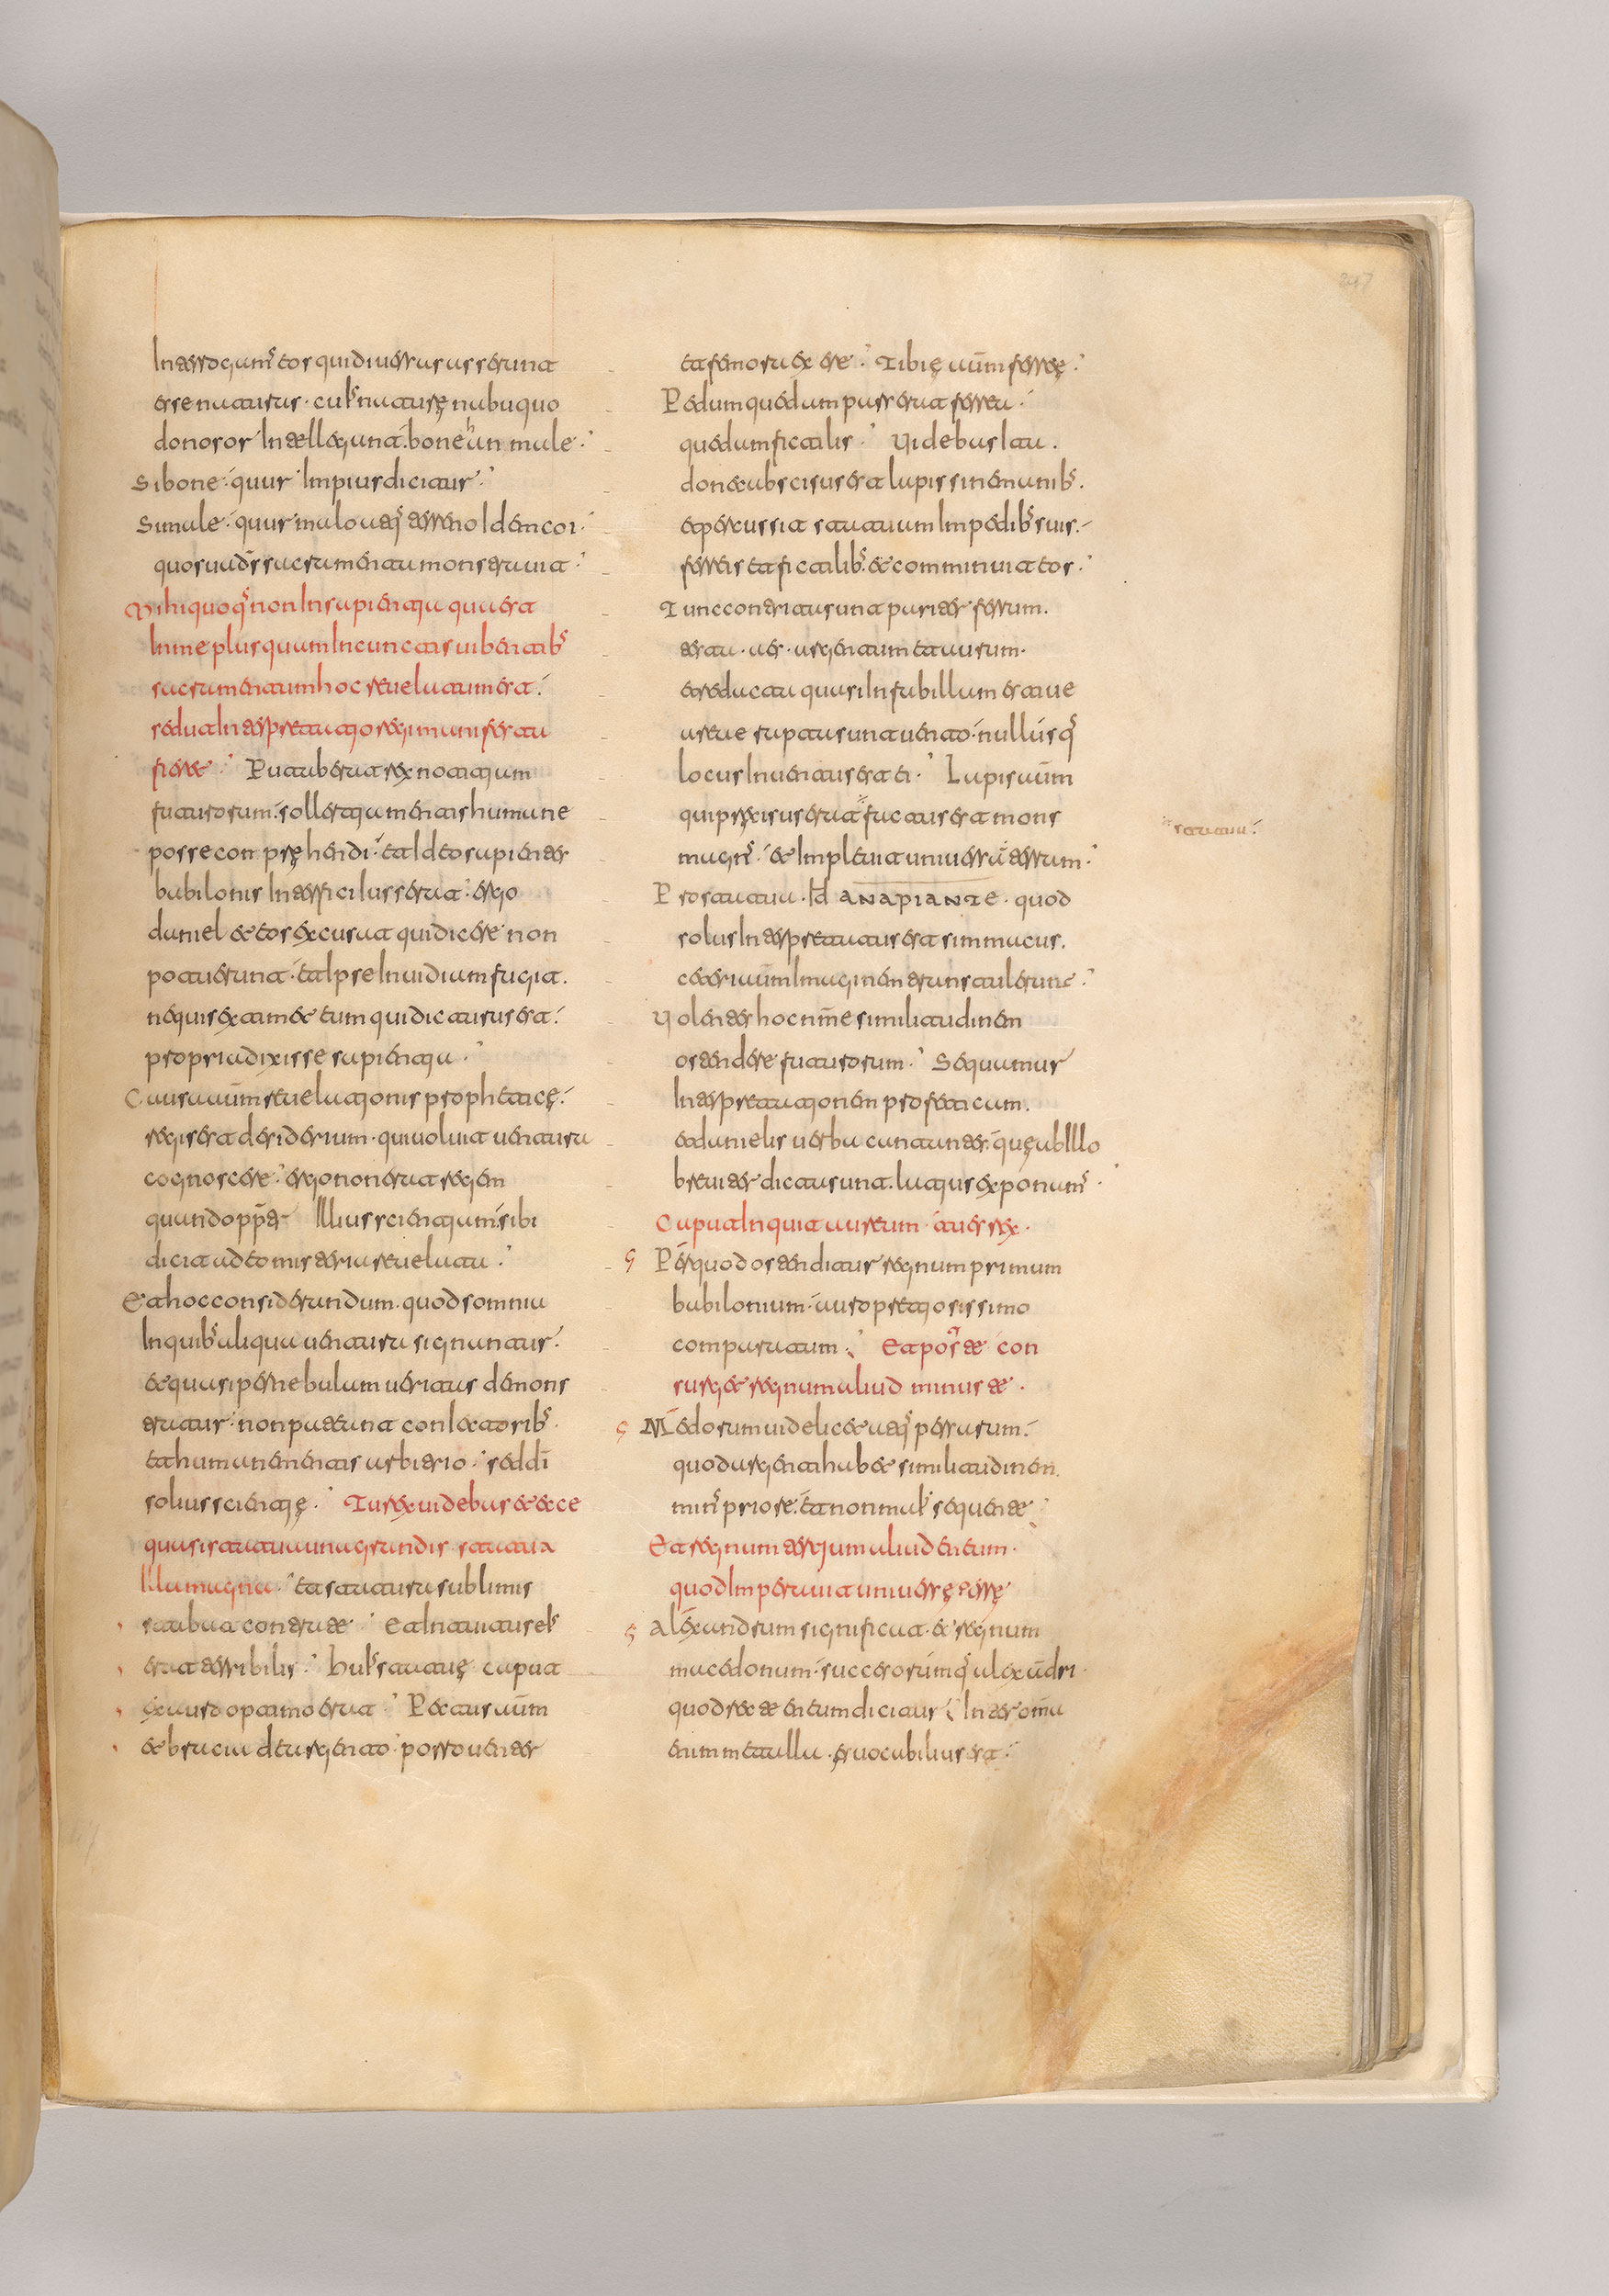 Interrogam⁹ eos qui diuersas serunt
esse naturas · cuis nature nabuquo
donosor intellegunt · bone han male ·
Si bone · quur impius dicitur ·
Si male · quur in malo uatis terreno ł dei ncoi ·
quos uud sacramenta monstrauit ·
Mihi quoq non in sapientia qua est
in me plus quam in cunctis uibentib
sacramentum hoc reuelatum est ·
sed ut interpretatio regi manifesta
fieret · Putaberat rex notitiam
futurorum · sollertia mentis humane
posse conprehendi · et ideo sapientes
babilonis interfici iusserat · ergo
daniel et eos excusat qui dicere non
potuerunt · et ipse inuidiam fugit ·
ne quis extimet eum qui dicturus est ·
propria dixisse sapientia ·
Causa uum reuelationis prophetice ·
regis est desiderium · qui uoluit uentura
cognoscere · ergo non erat regem
quando ppter illius scientiam sibi
dicit a deo misteria reuelata ·
Et hoc considerandum · quod somnia
In quib aliqua uentura signantur ·
et quasi per nebulam ueritas demons
tratur · non pateant coniectorib
et humane mentis arbitrio · sed di
solius scientie · Tu rex uidebas et ecce
quasi statua una grandis · statua
illa magna · et statura sublimis
stabat contra te · Et intuitus eis
erat terribilis · Huis statue caput
ex auro optimo erat · Pectus aum
et bracia de argento · porro uenter
et femora ex ere · Tibie aum ferree ·
Pedum quedam pars erat ferrea ·
quedam fictilis · Videbas ita ·
donec abscisus est lapis sine manib ·
et percussit statuam in pedib suis ·
ferreis et fictilib · et comminuit eos ·
Tunc contritus sunt pariter ferrum ·
testa · es · argentum et aurum ·
et redacta quasi in fabillam estiue
areae raptas sunt uento · nullusq
locus inuentus est ei · Lapis aum
qui percusserat factus est mons
magn · et impleuit uniuersa terram ·
Pro statua · id ANAPIANTE · quod
solus interpretatus est simmacus ·
ceteri aum imaginem transtulerunt ·
Volentes hoc nme similitudinem
ostendere futurorum · Sequamur
Interpretationem profeticam ·
et danielis uerba cunctantes · que ab illo
breuiter dicta sunt · latius exponam ·
Caput inquit aureum · tu es rex ·
Per quod ostenditur regnum primum
babilonium · auro pretiosissimo
comparatum · Et post te con
surget regnum aliud minus te ·
Medorum uidelicet atq persarum ·
quod argenti habet similitudinem ·
min priore · et non mais sequente ·
Et regnum tertium aliud ereum ·
quod imperauit uniuerse terre
Alexandrum significat · et regnum
macedonum · successorumq alexadri ·
quod recte ereum dicitur · Inter oma
enim metalla · es uocabilius est ·
statua ·
247